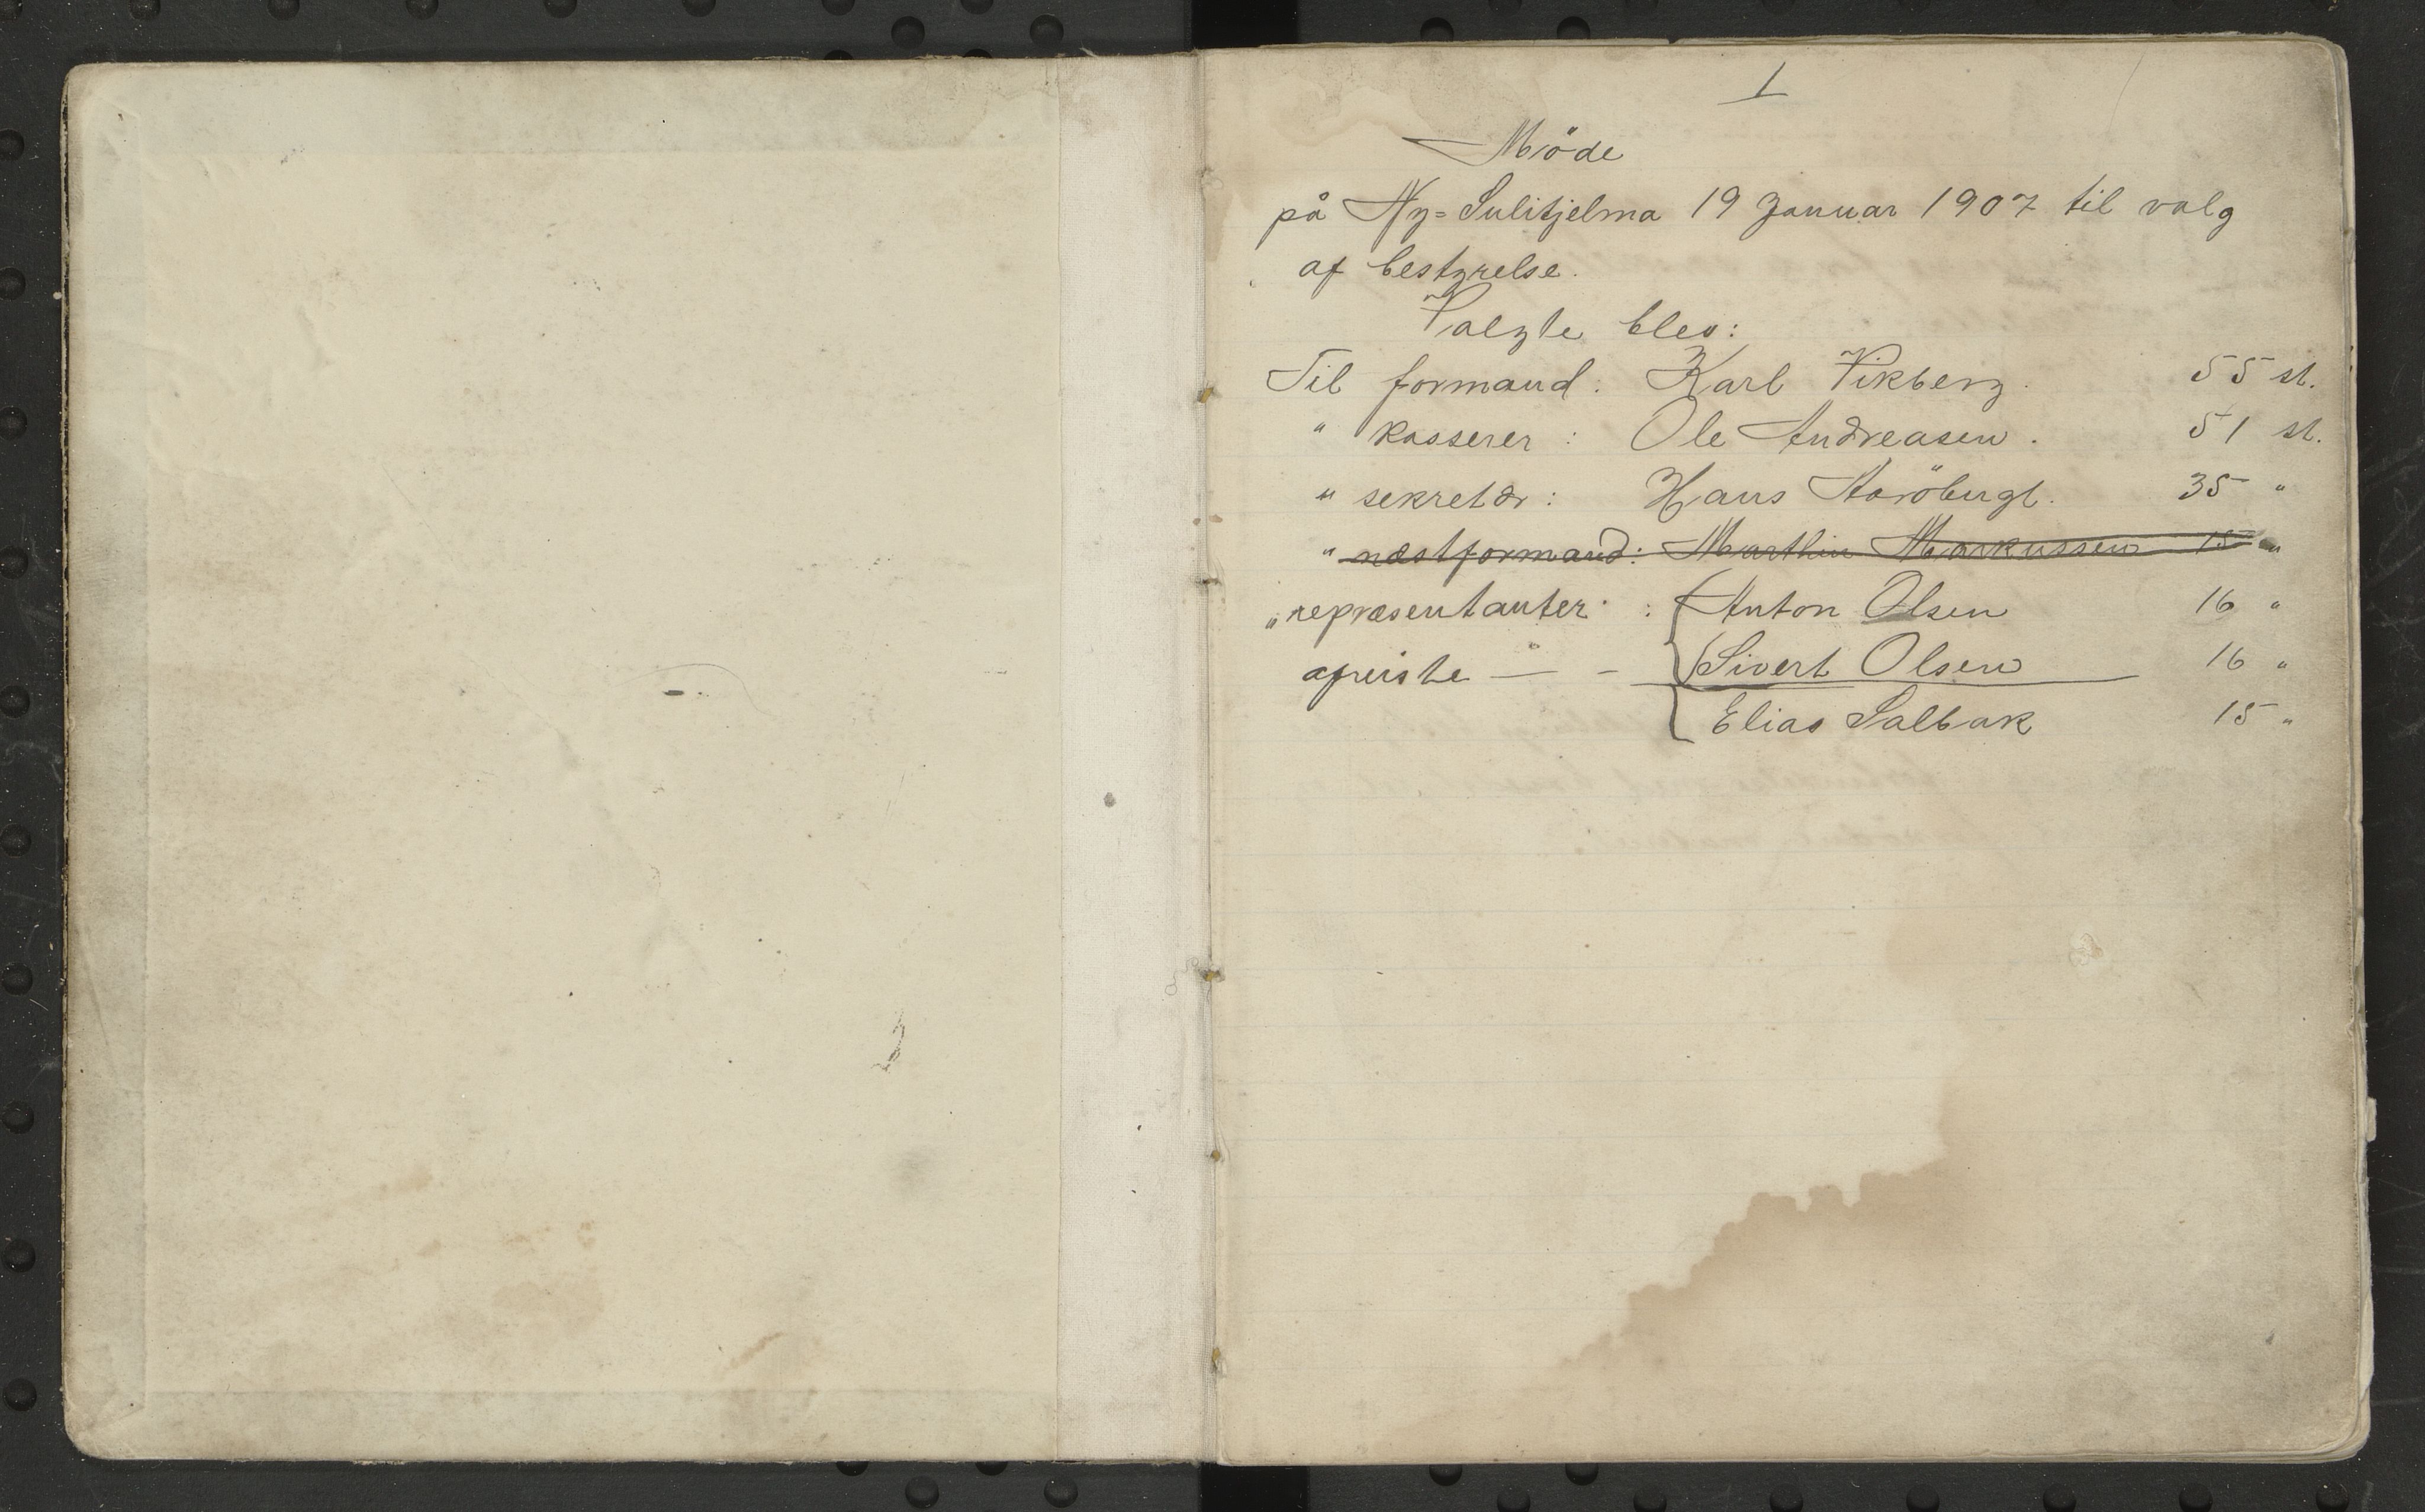 1
Møde
på Ny=Sulitjelma 19 Januar 1907 til valg
af bestyrelse.
Valgte blev:
Til formand: Karl Vikberg. 55 st.
" kasserer: Ole Andreasen. 51 st.
" sekretær: Hans 35 "
" næstformand: Marthin Markussen 15 "
" repræsentanter: Anton Olsen 16 "
Sivert Olsen 16 "
Elias Salbak 15 "